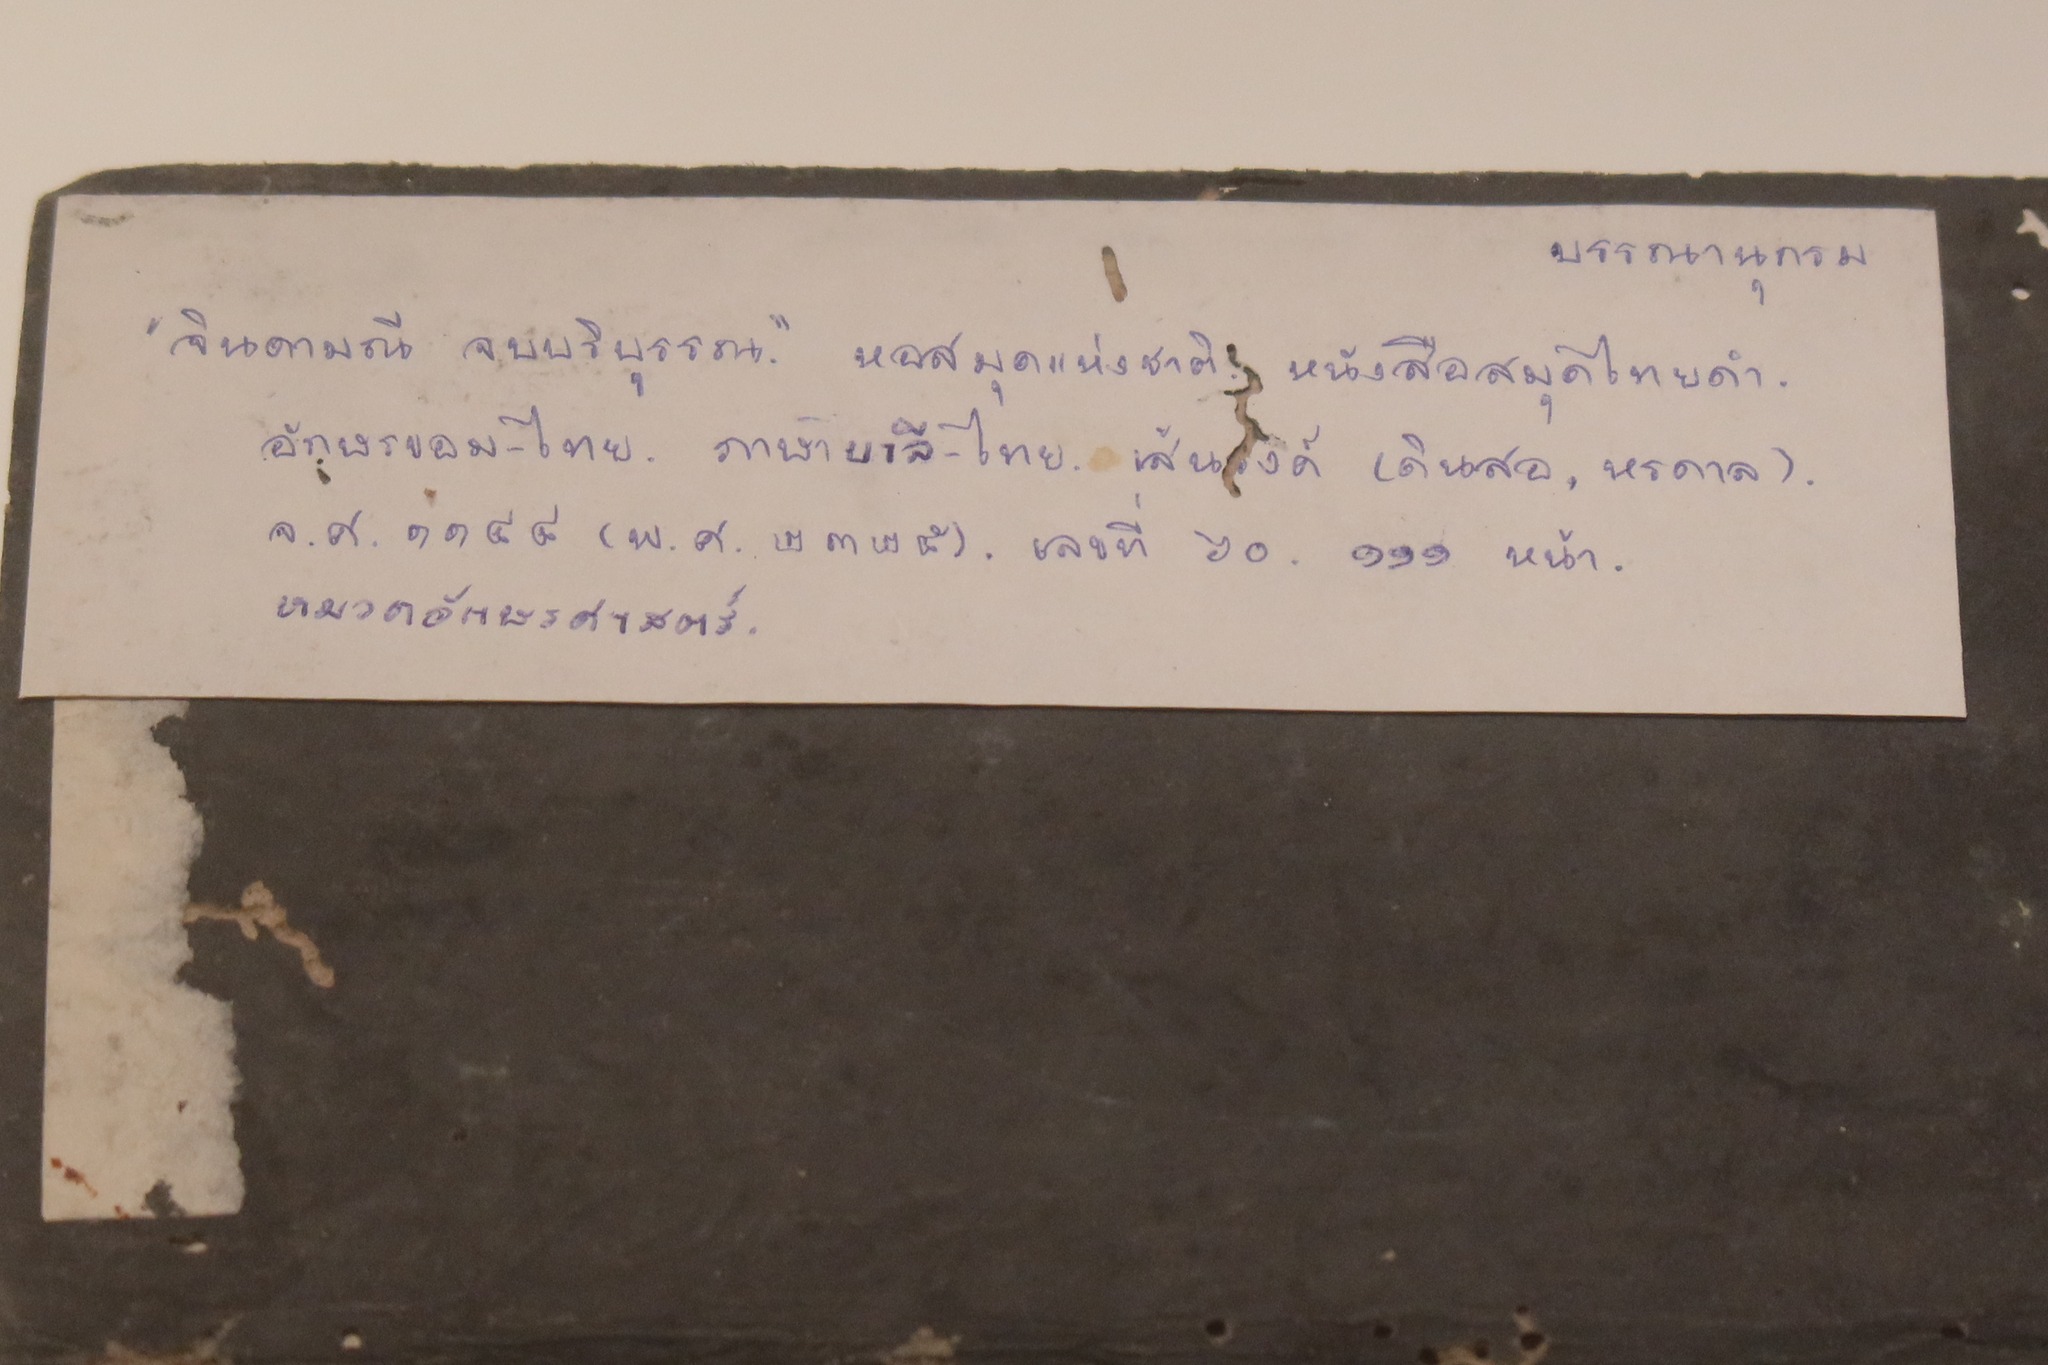 บรรณานุกรม
"จินดามณี จบบริบุรรณ." หอสมุดแห่งชาติ. หนังสือสมุดไทยดำ.
อักษรขอม-ไทย. ภาษาบาลี-ไทย. เส้นรงค์ (ดินสอ, หรดาล).
จ.ศ. ๑๑๔๔ (พ.ศ. ๒๓๒๕). เลขที่ ๖๐. ๑๑๑ หน้า.
หมวดอักษรศาสตร์.